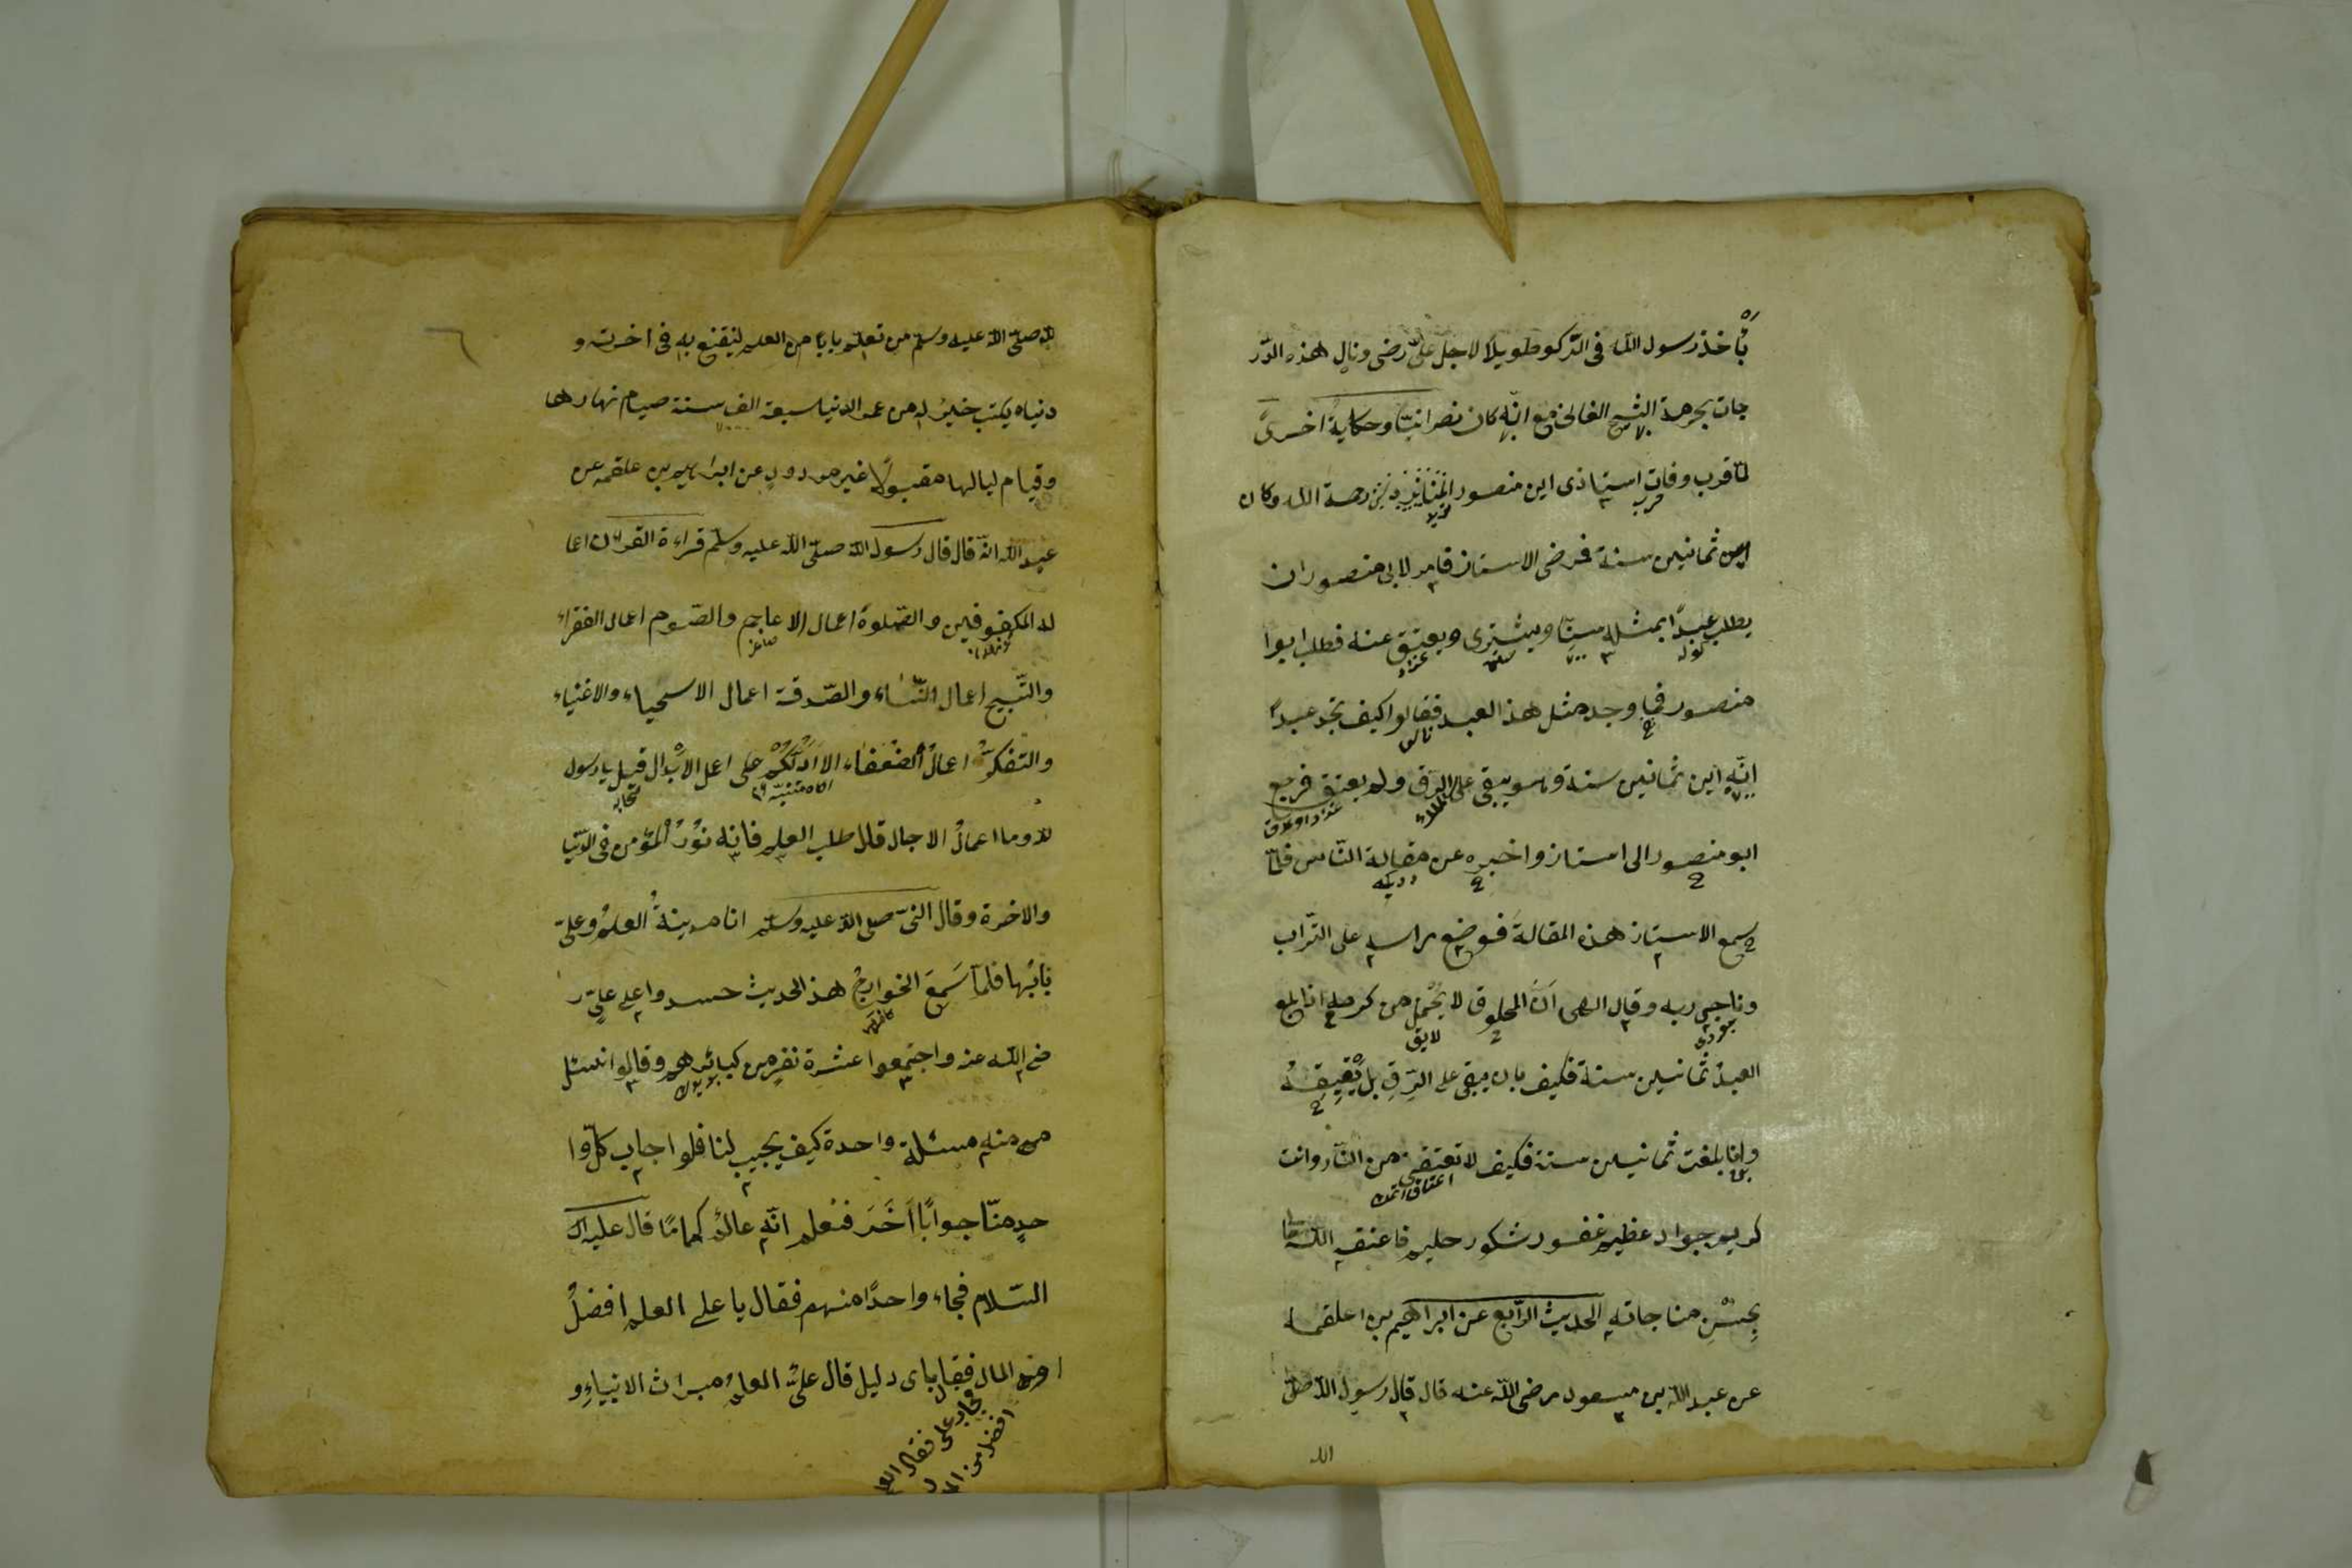 يأخذ رسول الله فى الركوع طويلا لاجل على رضى ونال هذه الدر
جات بحرمة الشيخ الفانى مع انه كان نصرانيا وحكاية اخرى
لما قرب وفات استاذى ابن منصور رحمة الله وكان
ابن ثمانين سنة فمرض الاستاز فامر لابى منصور ان
يطلب عبدا بمثله سنا ويشترى ويعتق عنه فطلب ابوا
منصور فما وجد مثل هذ العبد فقالوا كيف تجد عبدا
انه ابن ثمانين سنة وهو يبقى على الرق ولم يعتق فرجع
ابو منصور الى استاز واخبره عن مقالة الناس فلما
سمع الاستاز هذه المقالة فوضع راسه على التراب
وناجى ربه وقال الهى ان المخلوق لا يحمل من كرمه اذا بلغ
العبد ثمانين سنة فكيف بان يبقى على الرق بل يعتقه
وانا بلغت ثمانين سنة فكيف لا تعتقنى من النار وانت
كريم جواد عظيم غفور شكور حليم فاعتقه الله تعا
بحسن مناجاته الحديث الرابع عن ابراهيم بن علقمة
عن عبد الله بن مسعود رضى الله عنه قال قال رسول الله صلى
الله
٦
لله صلى الله عليه وسلم من تعلم بابا من العلم لينتفع به فى اخرته و
دنياه يكتب خير له من عمر الدنيا سبعة الف سنة صيام نهارها
وقيام لياليها مقبولا غير مردود عن ابراهيم بن علقمه عن
عبد الله انه قال قال رسول الله صلى الله عليه وسلم قراءة القرآن اعما
له المكفوفين والصلوة اعمال الاعاجم والصوم اعمال الفقراء
والتسبيح اعمال النساء والصدقة اعمال الاسخياء والاغنياء
والتفكر اعمال الضعفاء الا ادلكم على اعمل الابدال قيل يا رسول
لله وما اعمال الابدال قال طلب العلم فانه نور المؤمن فى الدنيا
والاخرة وقال النبى صلى الله عليه وسلم انا مدينة العلم وعلى
بابها فلما سمع الخوارج هذ الحديث حسدوا على على ر
ضى الله عنه واجتمعوا عشرة نفر من كبائرهم وقالوا نسئل
من منه مسئلة واحدة كيف يجيب لنا فلو اجاب كل وا
حد منا جوابا اخر فنعلم انه عالم كما قال عليه ال
السلام فجاء واحدا منهم فقال يا على العلم افضل
ام المال فقال باى دليل قال على العلم ميراث الانبياء و
فجاب على فقال العلم
افضل من المال